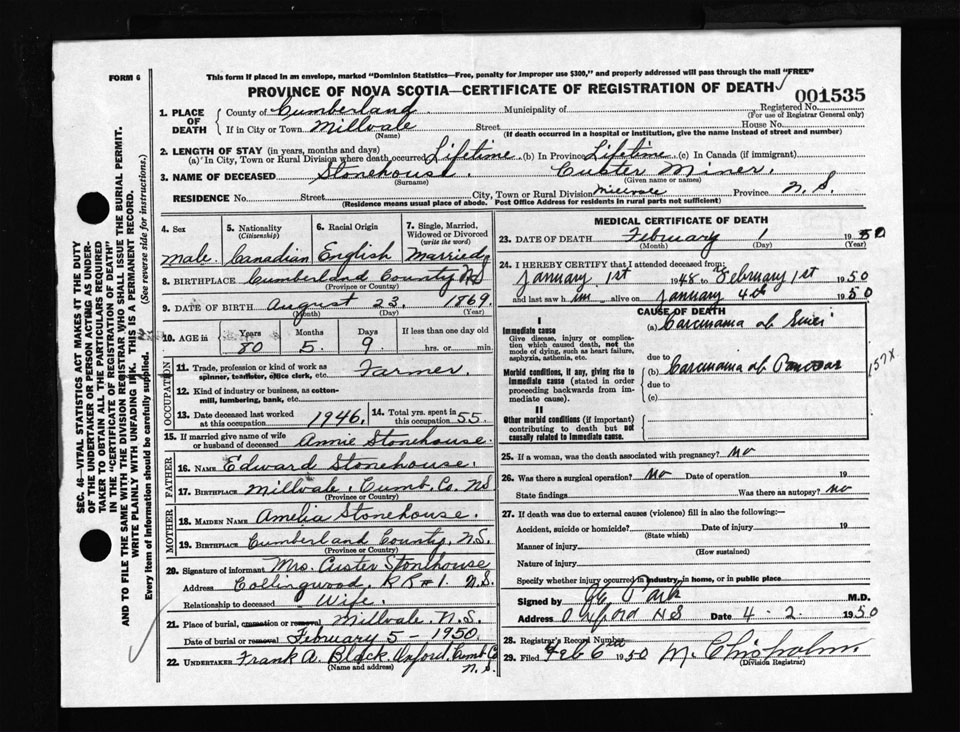 FORM 6
This form if placed in an envelope, marked "Dominion Statistics—Free, penalty for improper use $300," and properly addressed will pass through the mail "FREE"
PROVINCE OF NOVA SCOTIA—CERTIFICATE OF REGISTRATION OF DEATH
001535
1. PLACE OF DEATH
County of Cumberland Municipality of Registered No.
(For use of Registrar General only)
If in City or Town Millvale Street House No.
(Name) (If death occurred in a hospital or institution, give the name instead of street and number)
2. LENGTH OF STAY (in years, months and days)
(a) In City, Town or Rural Division where death occurred Lifetime. (b) In Province Lifetime. (c) In Canada (if immigrant)
3. NAME OF DECEASED Stonehouse. Custer Miner.
(Surname) (Given name or names)
RESIDENCE No. Street City, Town or Rural Division Millvale Province N.S.
(Residence means usual place of abode. Post Office Address for residents in rural parts not sufficient)
4. Sex Male.
5. Nationality (Citizenship) Canadian
6. Racial Origin English
7. Single, Married, Widowed or Divorced (write the word) Married
8. BIRTHPLACE Cumberland County NS
(Province or Country)
9. DATE OF BIRTH August 23, 1869
(Month) (Day) (Year)
10. AGE in Years Months Days If less than one day old
80 5 9 hrs. or min.
OCCUPATION
11. Trade, profession or kind of work as spinner, teamster, office clerk, etc. Farmer.
12. Kind of industry or business, as cotton-mill, lumbering, bank, etc.
13. Date deceased last worked at this occupation 1946.
14. Total yrs. spent in this occupation 55.
15. If married give name of wife or husband of deceased Annie Stonehouse.
FATHER
16. NAME Edward Stonehouse.
17. BIRTHPLACE Millvale, Cumb. Co. NS
(Province or Country)
MOTHER
18. MAIDEN NAME Amelia Stonehouse.
19. BIRTHPLACE Cumberland County, N.S.
(Province or Country)
20. Signature of informant Mrs. Custer Stonehouse
Address Collingwood, RR#1. N.S.
Relationship to deceased Wife.
21. Place of burial, cremation or removal Millvale, N.S.
Date of burial or removal February 5 - 1950
22. UNDERTAKER Frank A. Black, Oxford, Cumb. Co. N.S.
(Name and address)
MEDICAL CERTIFICATE OF DEATH
23. DATE OF DEATH February 1 1950
(Month) (Day) (Year)
24. I HEREBY CERTIFY that I attended deceased from:
January 1st 1948 to February 1st 1950
and last saw him alive on January 4th 1950
CAUSE OF DEATH
I
Immediate cause
Give disease, injury or complication which caused death, not the mode of dying, such as heart failure, asphyxia, asthenia, etc.
(a) Carcinama of
due to
Morbid conditions, if any, giving rise to immediate cause (stated in order proceeding backwards from immediate cause).
(b) Carcinama of Pancreas
due to
(c)
157X
II
Other morbid conditions (if important) contributing to death but not causally related to immediate cause.
25. If a woman, was the death associated with pregnancy? No
26. Was there a surgical operation? No Date of operation 19
State findings Was there an autopsy? No
27. If death was due to external causes (violence) fill in also the following:
Accident, suicide or homicide? Date of injury 19
(State which)
Manner of injury
(How sustained)
Nature of injury
Specify whether injury occurred in industry, in home, or in public place
Signed by Park M.D.
Address Oxford NS Date 4-2 1950
28. Registrar's Record Number
29. Filed Feb 6 1950 M. Chisholm
(Division Registrar)
SEC. 46—VITAL STATISTICS ACT MAKES IT THE DUTY
OF THE UNDERTAKER OR PERSON ACTING AS UNDER-
TAKER TO OBTAIN ALL THE PARTICULARS REQUIRED
IN THE "CERTIFICATE OF REGISTRATION OF DEATH"
AND TO FILE THE SAME WITH THE DIVISION REGISTRAR WHO SHALL ISSUE THE BURIAL PERMIT.
WRITE PLAINLY WITH UNFADING INK. THIS IS A PERMANENT RECORD.
Every item of Information should be carefully supplied. (See reverse side for instructions.)